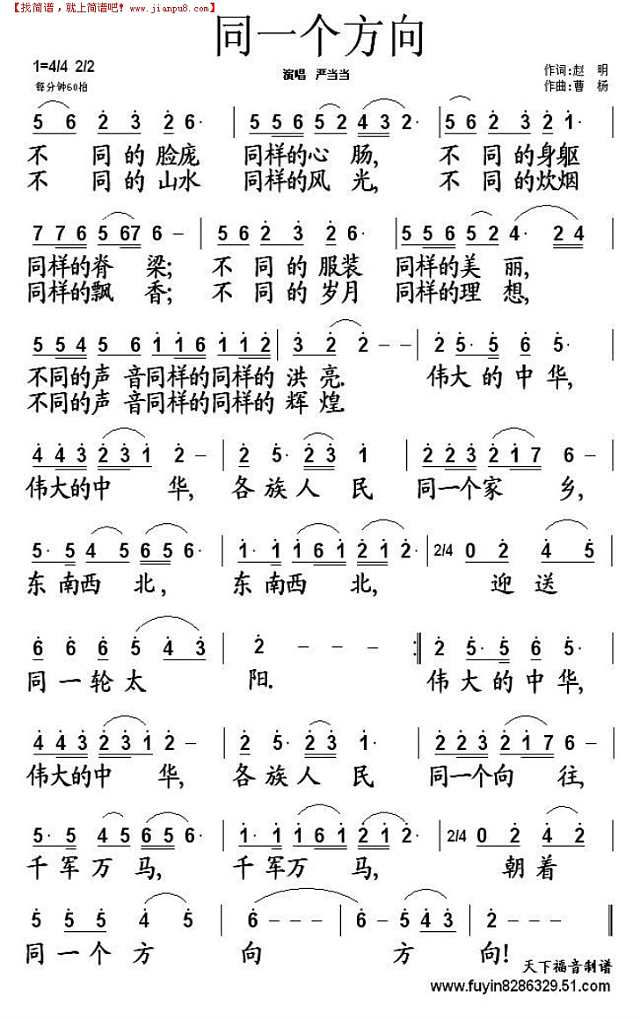 【找简谱，就上简谱吧! www.jianpu8.com】
同一个方向
1=4/4 2/2
演唱 严当当
作词:赵 明
每分钟60拍
作曲:曹 杨
5 6 2 3 2 6· | 5 5 6 5 2 4 3 2· | 5 6 2 3 2 1· |
不 同的脸庞 同样的心 肠, 不 同的身躯
不 同的山水 同样的风 光, 不 同的炊烟
7 7 6 5 67 6 – | 5 6 2 3 2 6· | 5 5 6 5 2 4· 2 4 |
同样的脊 梁; 不 同的服装 同样的美 丽,
同样的飘 香; 不 同的岁月 同样的理 想,
5 5 2 4 5 6 1 1 6 1 1 2 | 3 2 2 – – | 2 5· 5 6 5· |
不同的声 音同样的同样的 洪亮. 伟大的中华,
不同的声 音同样的同样的 辉煌
4 4 3 2 3 1 2 – | 2 5· 2 3 1 | 2 2 3 2 1 7 6 – |
伟大的中 华, 各族人 民 同一个家 乡,
5· 5 4 5 6 5 6· | 1· 1 1 6 1 2 1 2· | 2/4 0 2 4 5 |
东南西 北, 东南西 北, 迎 送
6 6 6 5 4 3 | 2 – – – :‖ 2 5· 5 6 5· |
同一轮太 阳. 伟大的中华,
4 4 3 2 3 1 2 – | 2 5· 2 3 2 | 2 2 3 2 1 7 6 – |
伟大的中 华, 各族人 民 同一个向 往,
5· 5 4 5 6 5 6· | 1· 1 1 6 1 2 1 2· | 2/4 0 2 4 2 |
千军万 马, 千军万 马, 朝着
5 5 5 4 5 | 6 – – 6 | – 5 4 3 | 2 – – – ‖
同 一 个 方 向 方 向!
天下福音制谱
www.fuyin8286329.51.com